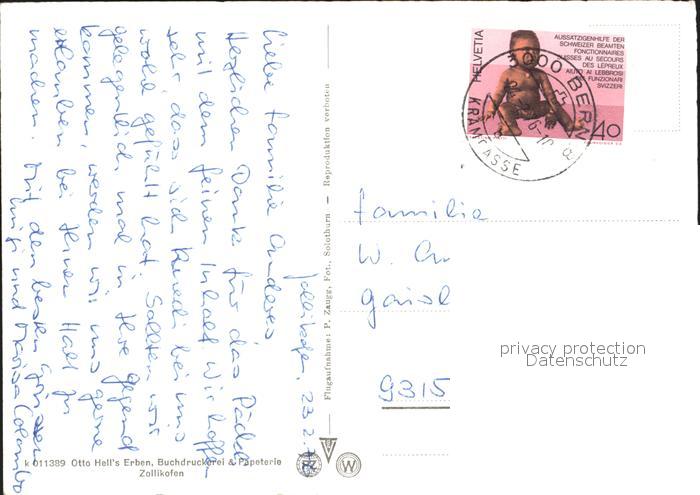 Zollikofen, 23.2.
Liebe Familie Anderes
Herzlichen Dank für das Päckli
mit dem feinen Inhalt. Wir hoffen
sehr, dass sich Ruedi bei uns
wohl gefühlt hat. Sollten wir
gelegentlich mal in Ihre Gegend
kommen, werden wir uns gerne
erlauben bei Ihnen Halt zu
machen. Mit den besten Grüssen
und Marisa Colombo
Flugaufnahme: P. Zaugg, Fot., Solothurn - Reproduktion verboten
k 011389 Otto Hell's Erben, Buchdruckerei & Papeterie
Zollikofen
W
HELVETIA
AUSSÄTZIGENHILFE DER
SCHWEIZER BEAMTEN
FONCTIONNAIRES
SUISSES AU SECOURS
DES LÉPREUX
AIUTO AI LEBBROSI
FUNZIONARI
SVIZZERI
40
3000 BERN 8
KRAMGASSE
Familie
W. An
9315
privacy protection
Datenschutz